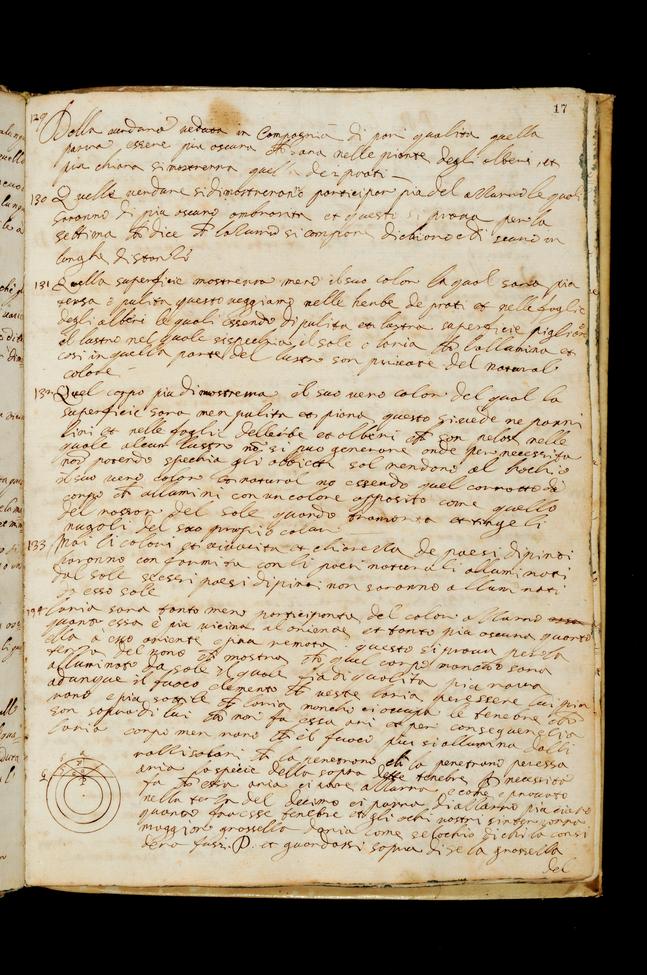 17
129 Della verdura veduta in Compagnia di pari qualita quella
parra essere piu oscura sara nelle piante degli alberi et
piu chiara si mostrerra quella dei prati
130 Quelle verdure si dimostreranno participar piu del azurro le quali
saranno di piu oscura ombrosita et questo si prova per la
settima dice si compone di chiaro e di scuro in
longha distantia
131 Quella superficie mostrerra meno il suo color la qual sara piu
tersa e pulita questo veggiamo nelle herbe de prati et nelle foglie
degli alberi le quali essendo di pulita et lustra superficie pigliano
il lustro nel quale si specchia il sole e laria allumina et
cosi in quella parte del lustro son privati del natural
colore
132 Quel corpo piu dimosterra il suo vero color del qual la
superficie sara men pulita et piana questo si vede ne panni
lini et nelle foglie dellerbe et alberi son pelose nelle
quale alcun lustro non si puo generare onde per necessita
non potendo specchiar gli obbietti sol rendano al occhio
il suo vero colore et natural no essendo quel corrotto da
corpo allumini con un colore opposito come quello
del rossor del sole quando tramonta et tinge li
nugoli del suo proprio color
133 Mai li colori et vivacita et chiarezza de paesi dipinti
haranno conformita con li paesi naturali alluminati
dal sole se essi paesi dipinti non saranno alluminati
da esso sole
134 laria sara tanto meno participante del color azurro
quanto essa e piu vicina al oriente et tanto piu oscura quanto
ella a esso oriente e piu remota questo si prova per la
terza del nono mostra quel corpo manco sara
alluminato da sole il quale fia di qualita piu rara
adunque il fuoco elemento veste laria per essere lui piu
raro e piu sottile laria manco ci occupa le tenebre
son sopra di lui non fa essa aria et per conseguentia
laria corpo men raro il fuoco piu si allumina dalli
razzi solari la penetrano la penetrano per essa
aria la specie della sopra dette tenebre necessita
fa essa aria ci pare azurra e come e provato
nella terza del decimo ci parra di azurro piu chiaro
quanto fra esse tenebre et gli ochi nostri sinterporra
maggior grossezza daria come se lochio di chi la consi
dera fussi .P. et guardassi sopra di se la grossezza
del